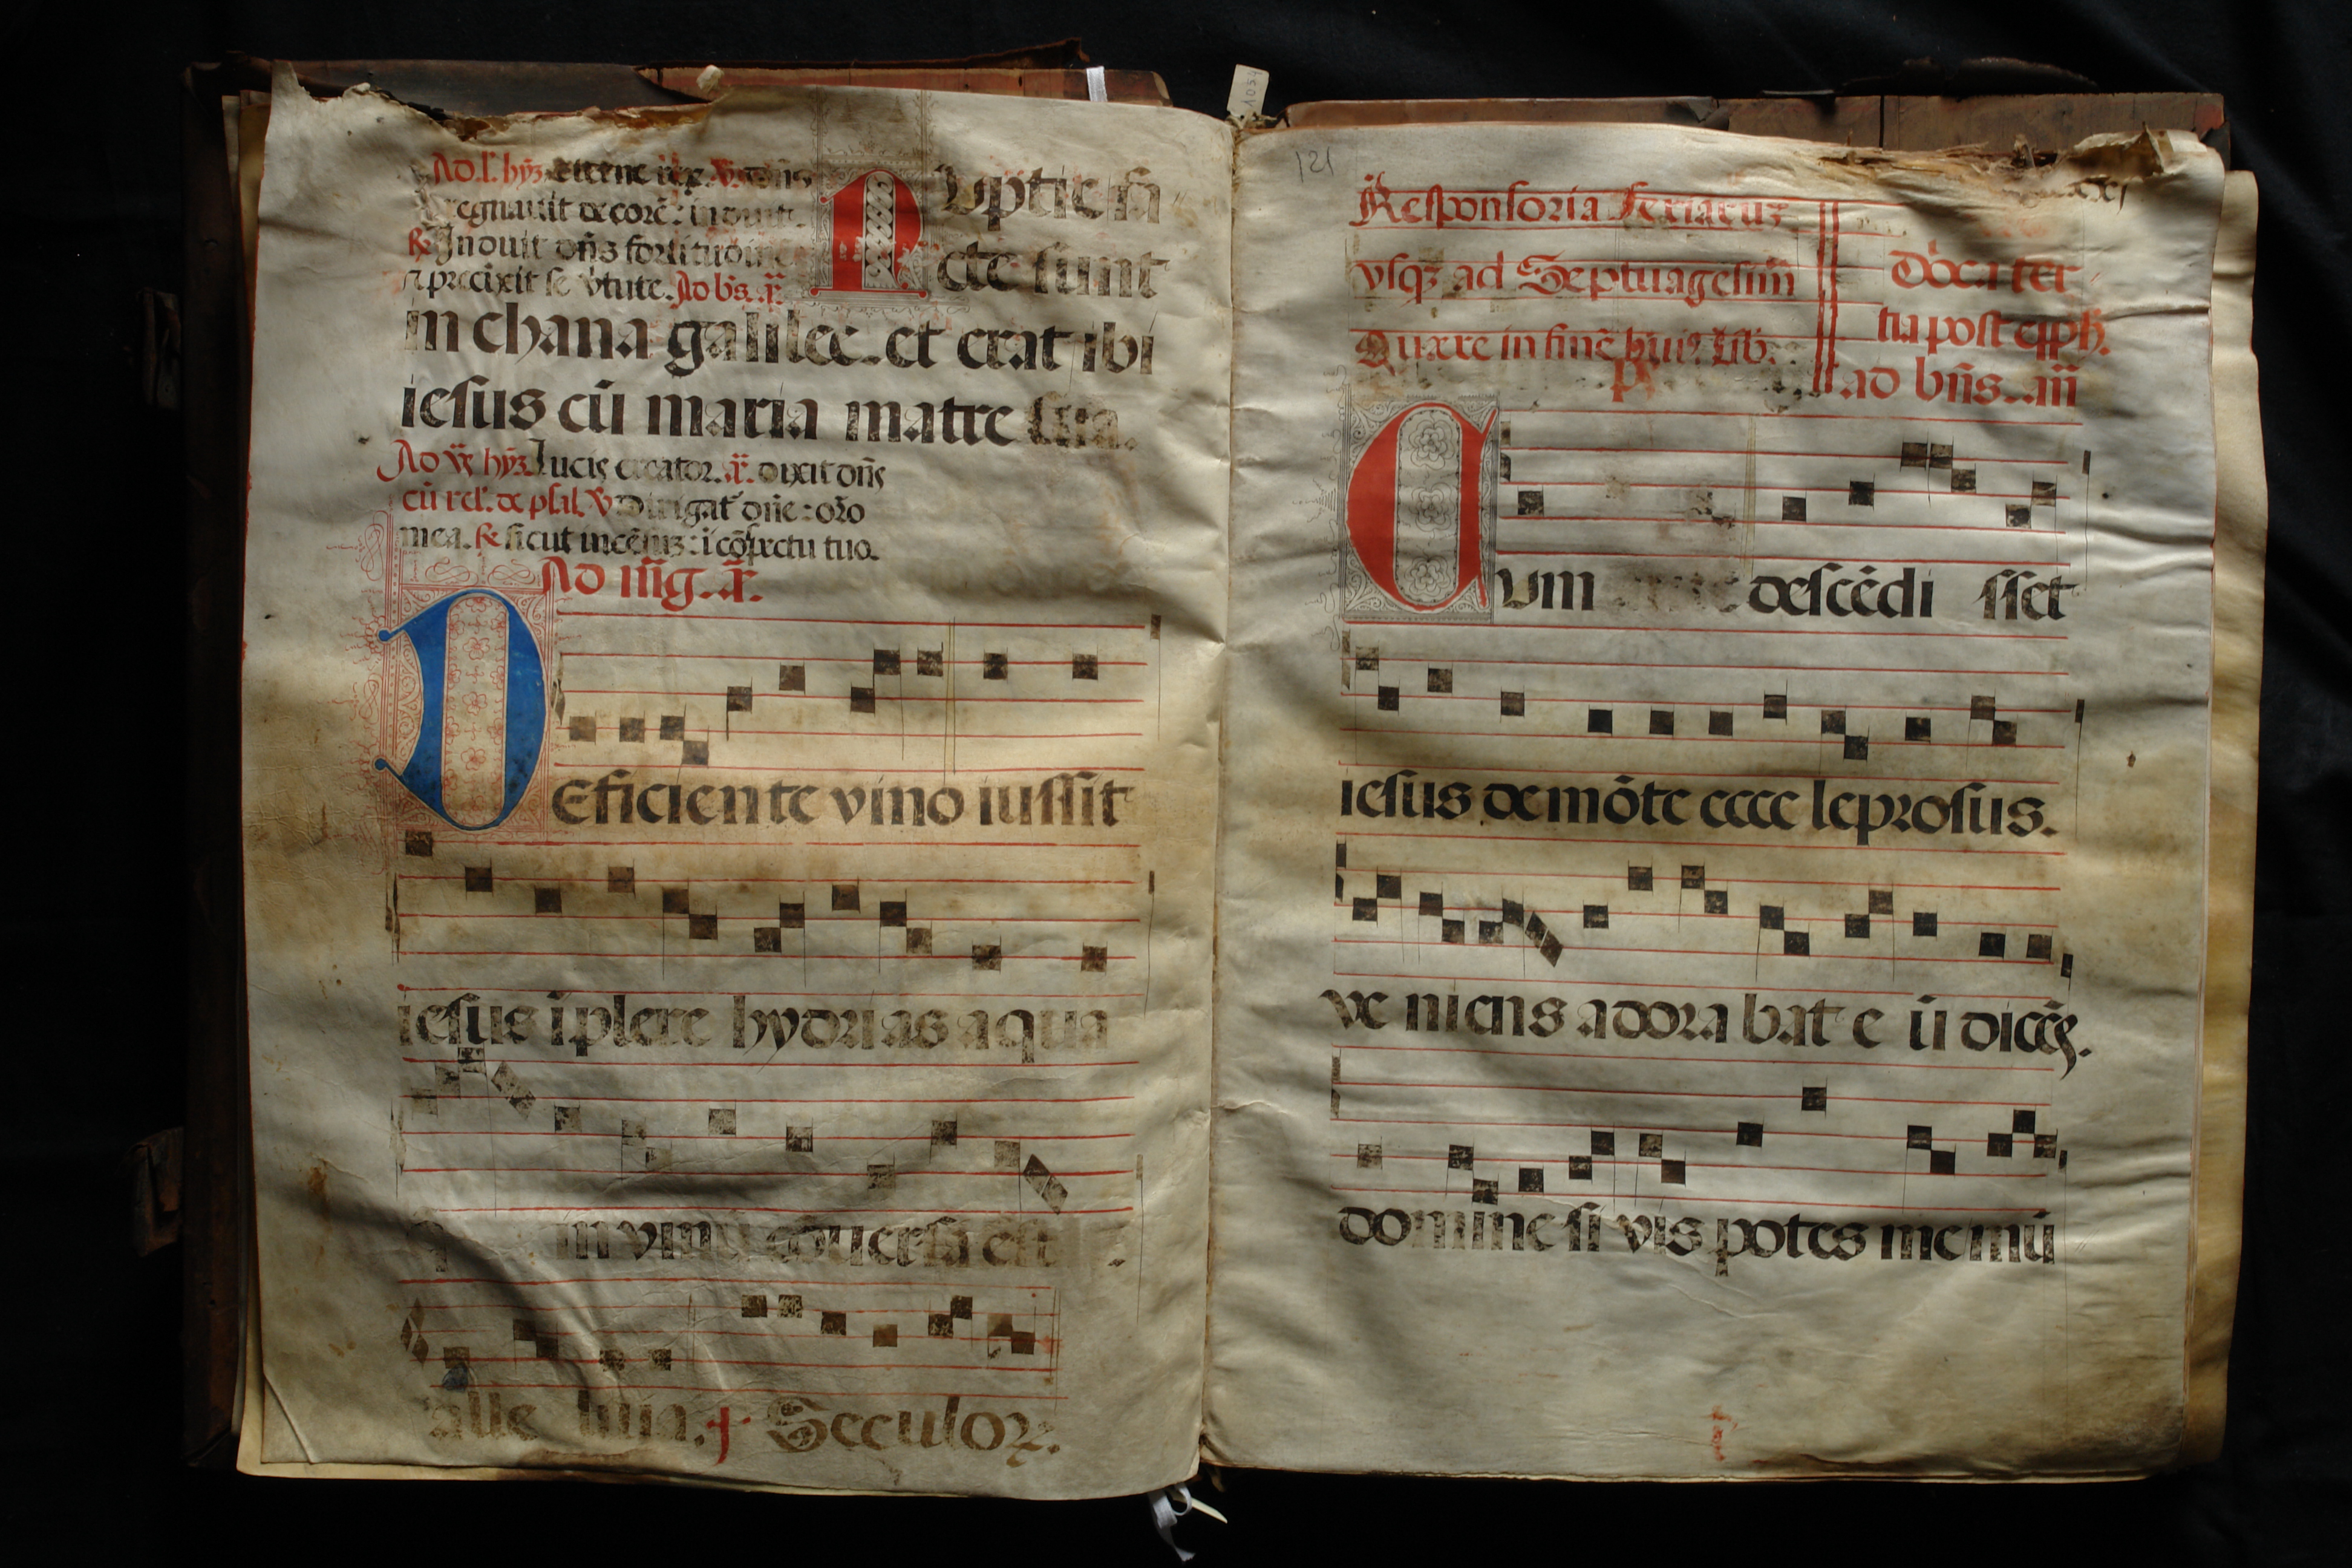 Ad. l. hyꝫ. Eterne rex. ꝟ. dn̄s
regnauit decorē: induit.
℞. Induit dn̄s fortitudinē
⁊ precīxit se ꝟtute. Ad bn̄s. an̄.
NVptie fa
cte sunt
in chana galilee. et erat ibi
iesus cū maria matre sua.
Ad ꝟs hyꝫ. Lucis creator. an̄. dixit dn̄s
cū rel. de psal. ꝟ Dirigat᷑ dn̄e: or̄o
mea. ℞ sicut incēsuꝫ: ī cōspectu tuo.
Ad m̄g. an̄.
DEficiente vino iussit
iesus īplere hydrias aqua
in vinū est
alle luia. Seculoꝝ.
121
Responsoria ferialiuꝫ
vsqꝫ ad Septuagesim̄
Quere in finē huiꝰ lib.
Dn̄ca ter
tia post epyph̄.
ad bn̄s. an̄
CVm descēdi sset
iesus de mōte ecce leprosus.
ve niens adora bat e ū dicēs.
domine si vis potes me mū
1054